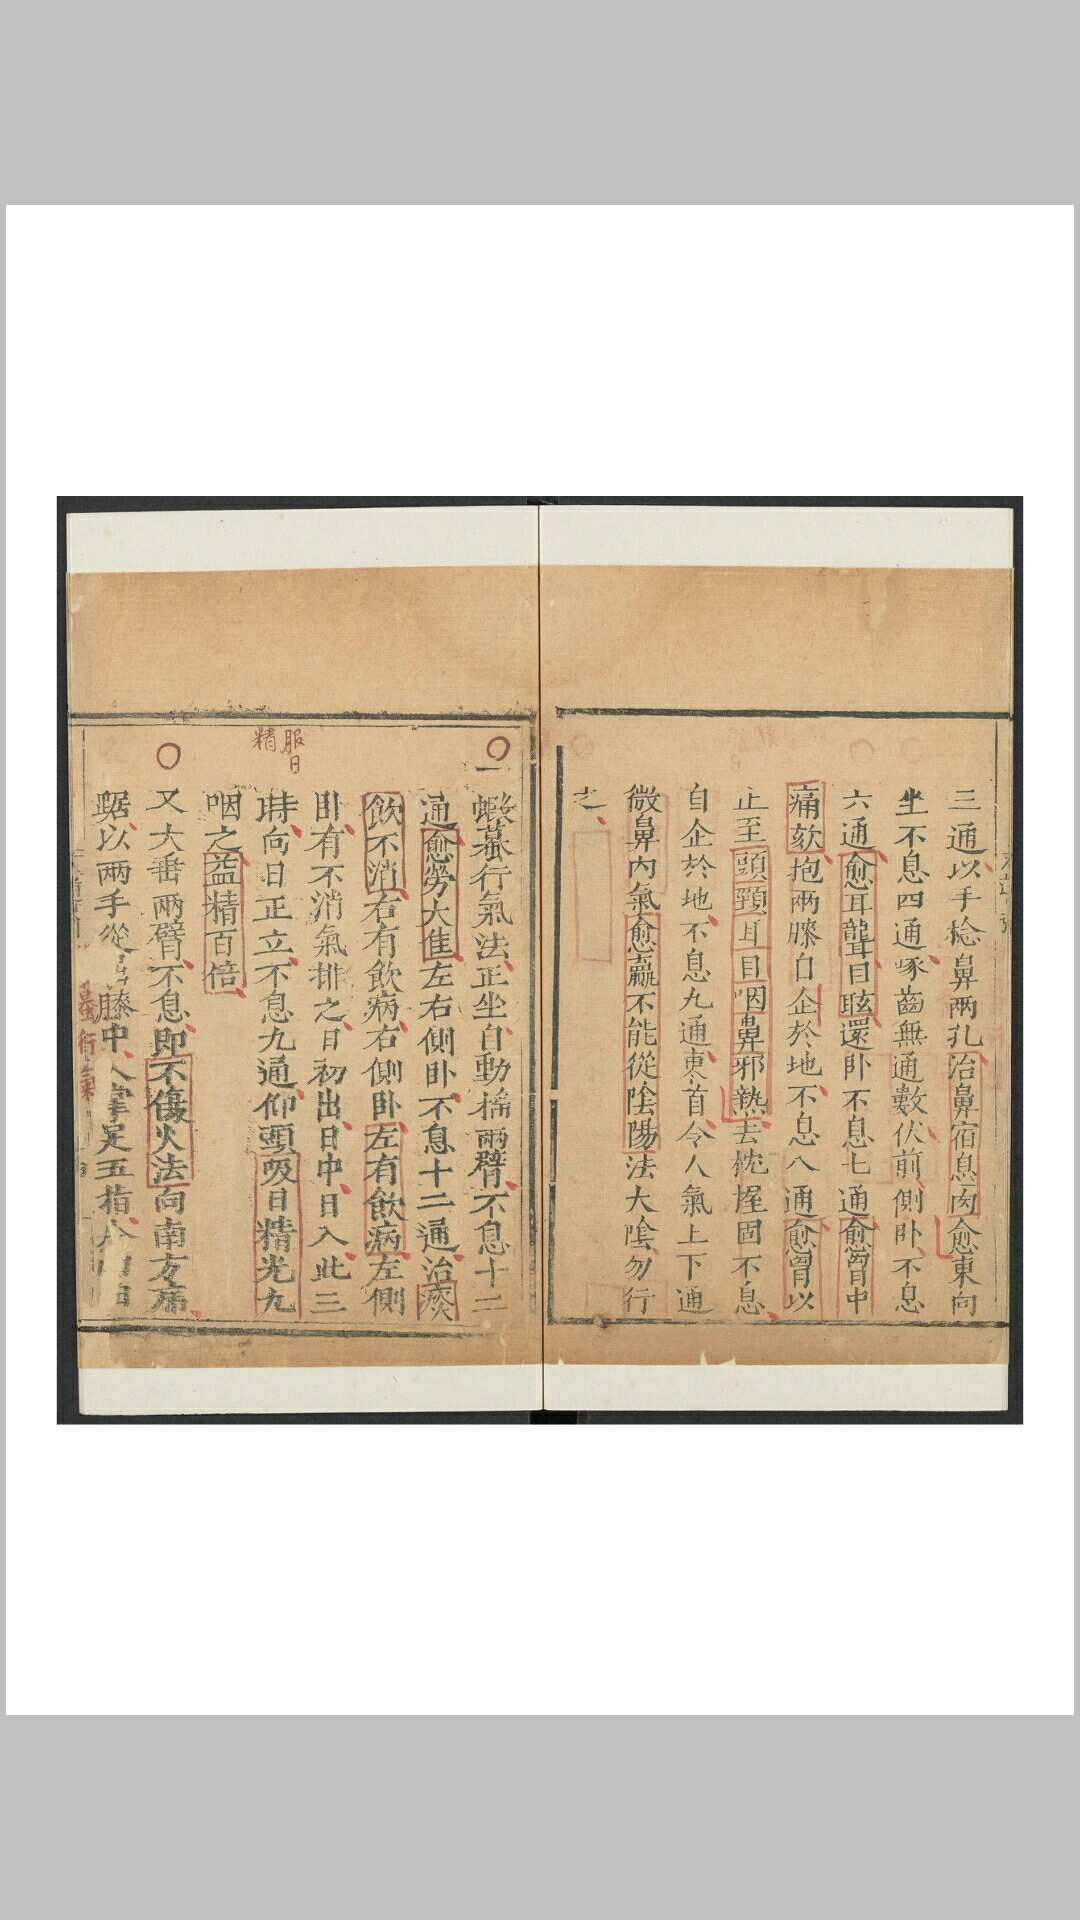 三通以手捻鼻兩孔治鼻宿息肉愈東向
坐不息四通啄齒無通數伏前側卧不息
六通愈耳聾目眩還卧不息七通愈胷中
痛欬抱兩膝自企於地不息八通愈胷以
止至頭頸耳目咽鼻邪熱去枕握固不息
自企於地不息九通東首令人氣上下通
微鼻內氣愈羸不能從陰陽法大陰勿行
之
一蝦蟇行氣法正坐自動搖兩臂不息十二
通愈勞大隹左右側卧不息十二通治痰
飲不消右有飲病右側卧左有飲病左側
卧有不消氣排之日初出日中日入此三
時向日正立不息九通仰頭吸日精光九
服日
精
咽之益精百倍
又大垂兩臂不息即不傷火法向南方
踞以兩手從膝中入掌足五指令